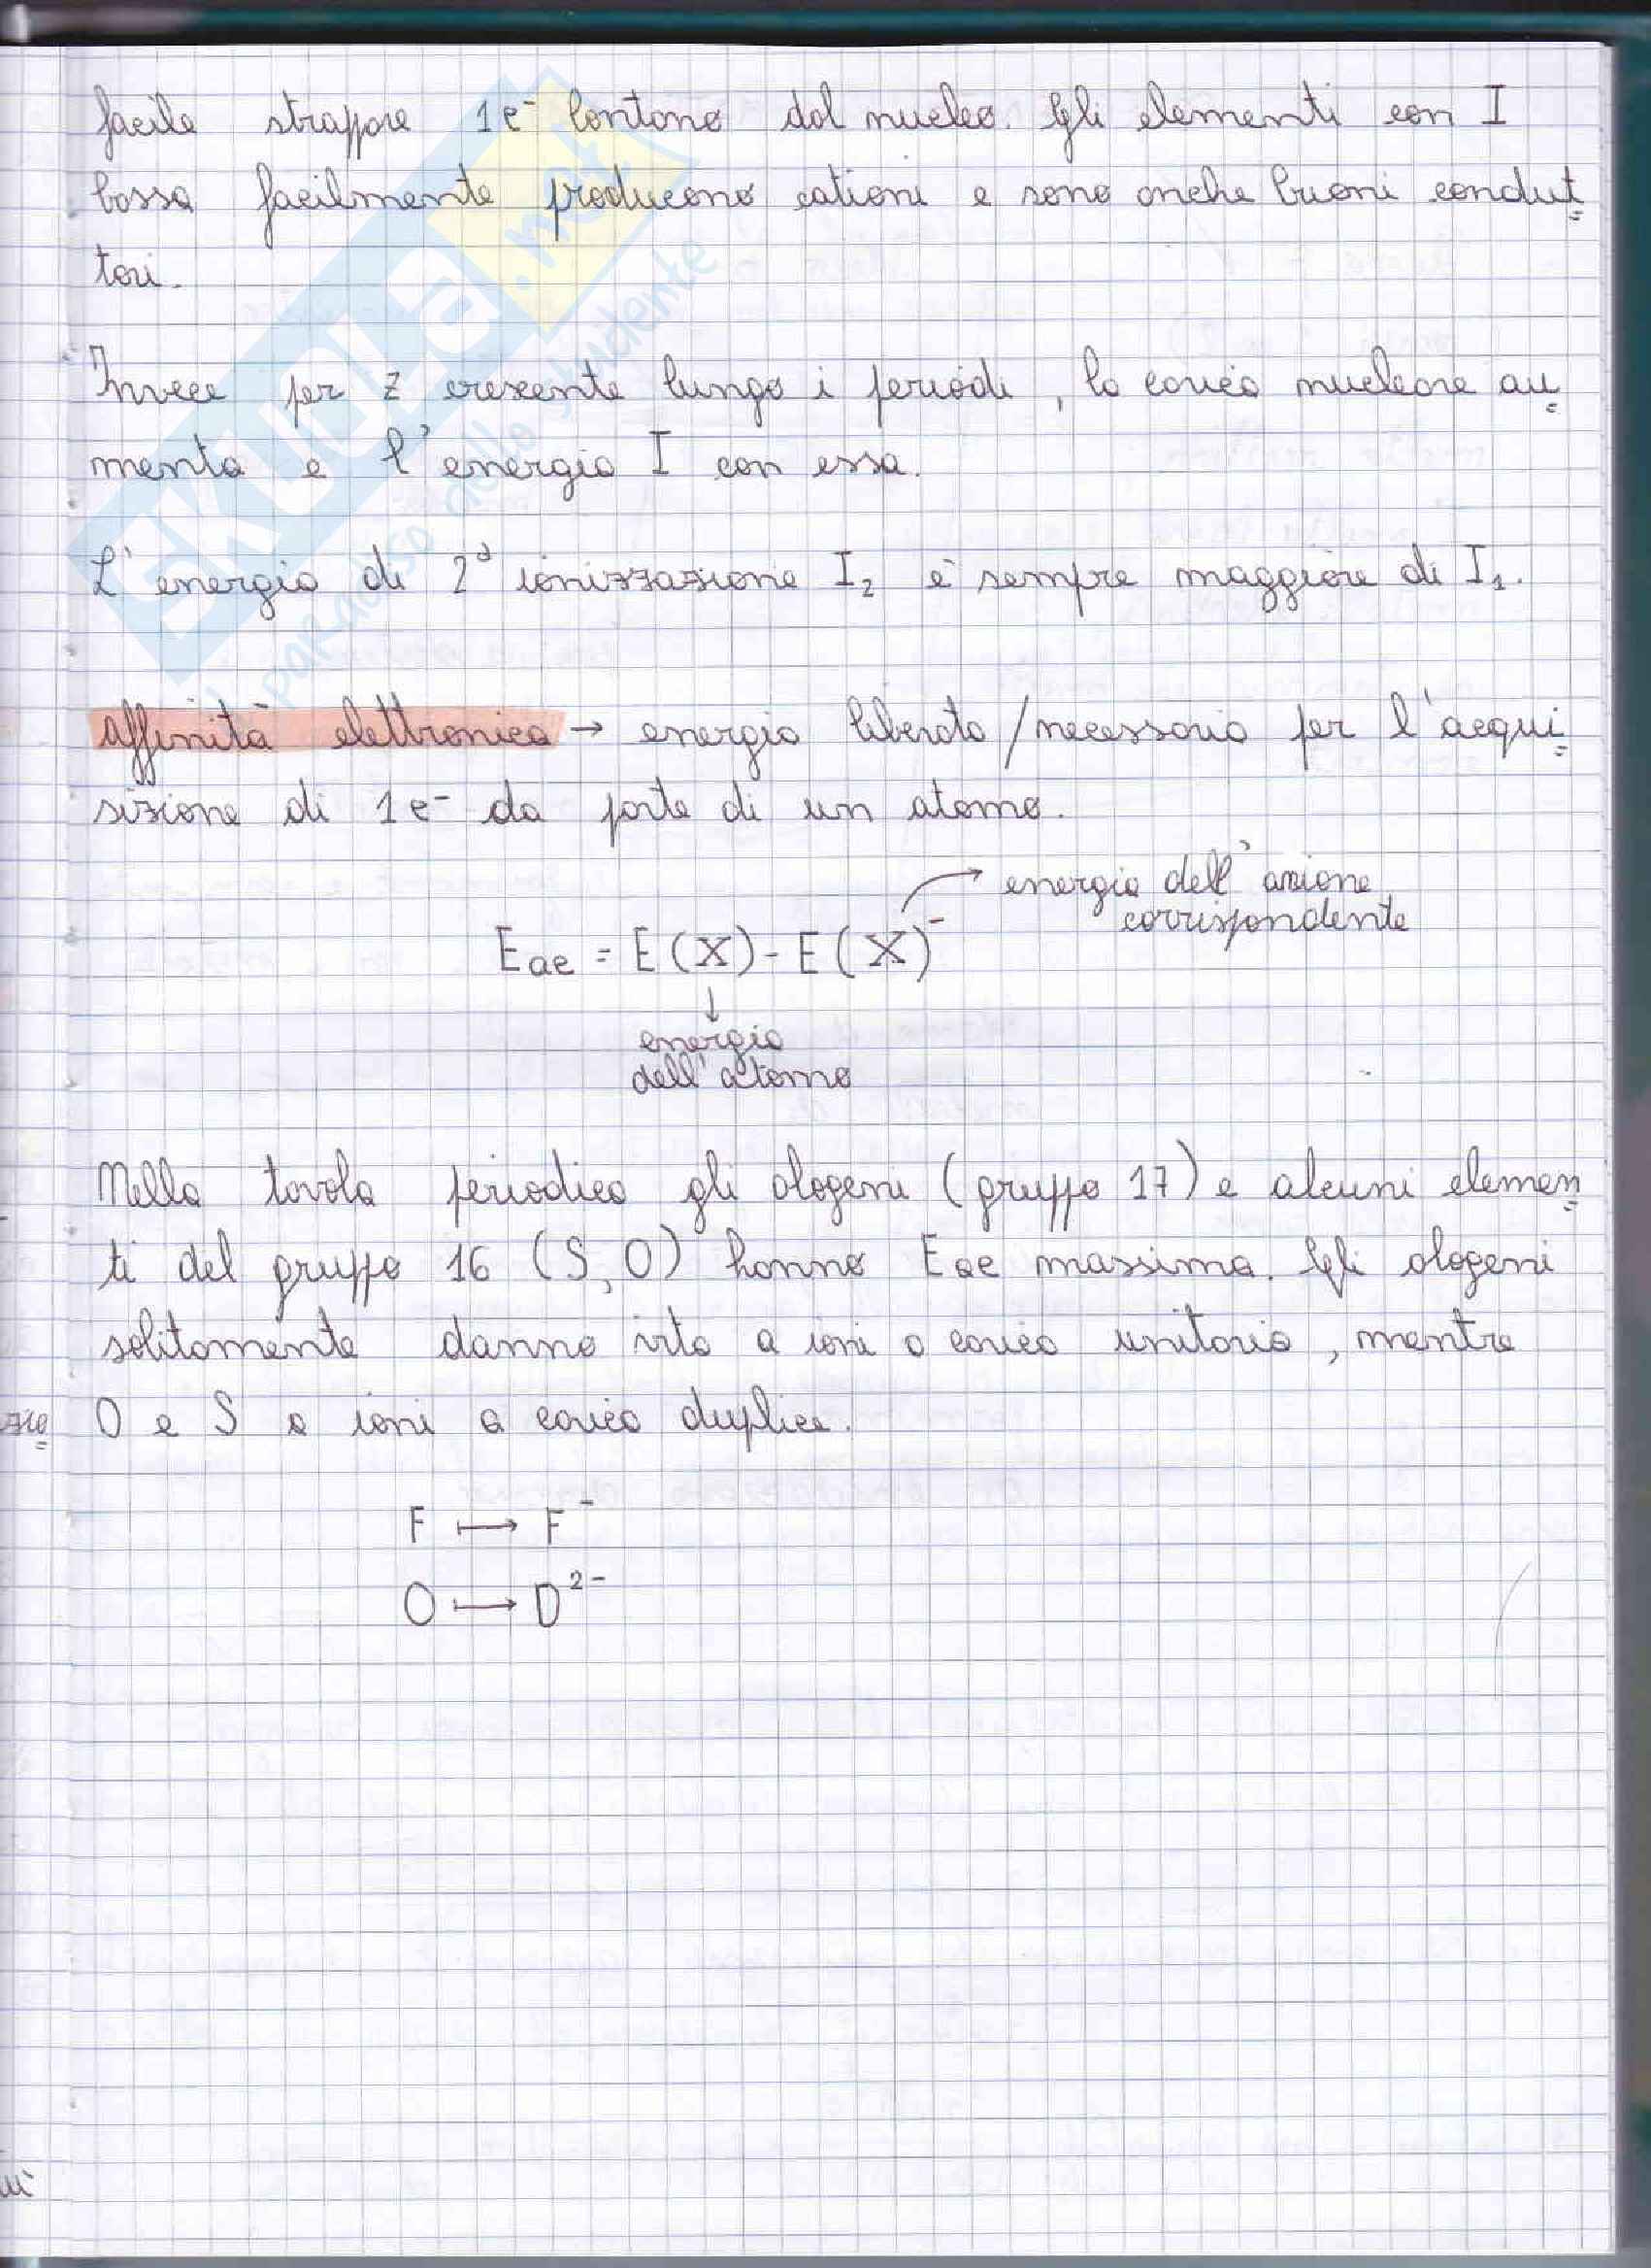 facile strappare 1e⁻ lontano dal nucleo. Gli elementi con I
bassa facilmente producono cationi e sono anche buoni condut=
tori.
Invece per Z crescente lungo i periodi, la carica nucleare au=
menta e l'energia I con essa.
L'energia di 2ª ionizzazione I₂ è sempre maggiore di I₁.
affinità elettronica → energia liberata/necessaria per l'acqui=
sizione di 1e⁻ da parte di un atomo.
energia dell'anione
corrispondente
Eae = E(X) - E(X)⁻
energia
dell'atomo
Nella tavola periodica gli alogeni (gruppo 17) e alcuni elemen=
ti del gruppo 16 (S, O) hanno Eae massima. Gli alogeni
solitamente danno vita a ioni a carica unitaria, mentre
O e S a ioni a carica duplice.
F ⟼ F⁻
O ⟼ O²⁻
SKUOLA.net
il paradiso dello studente